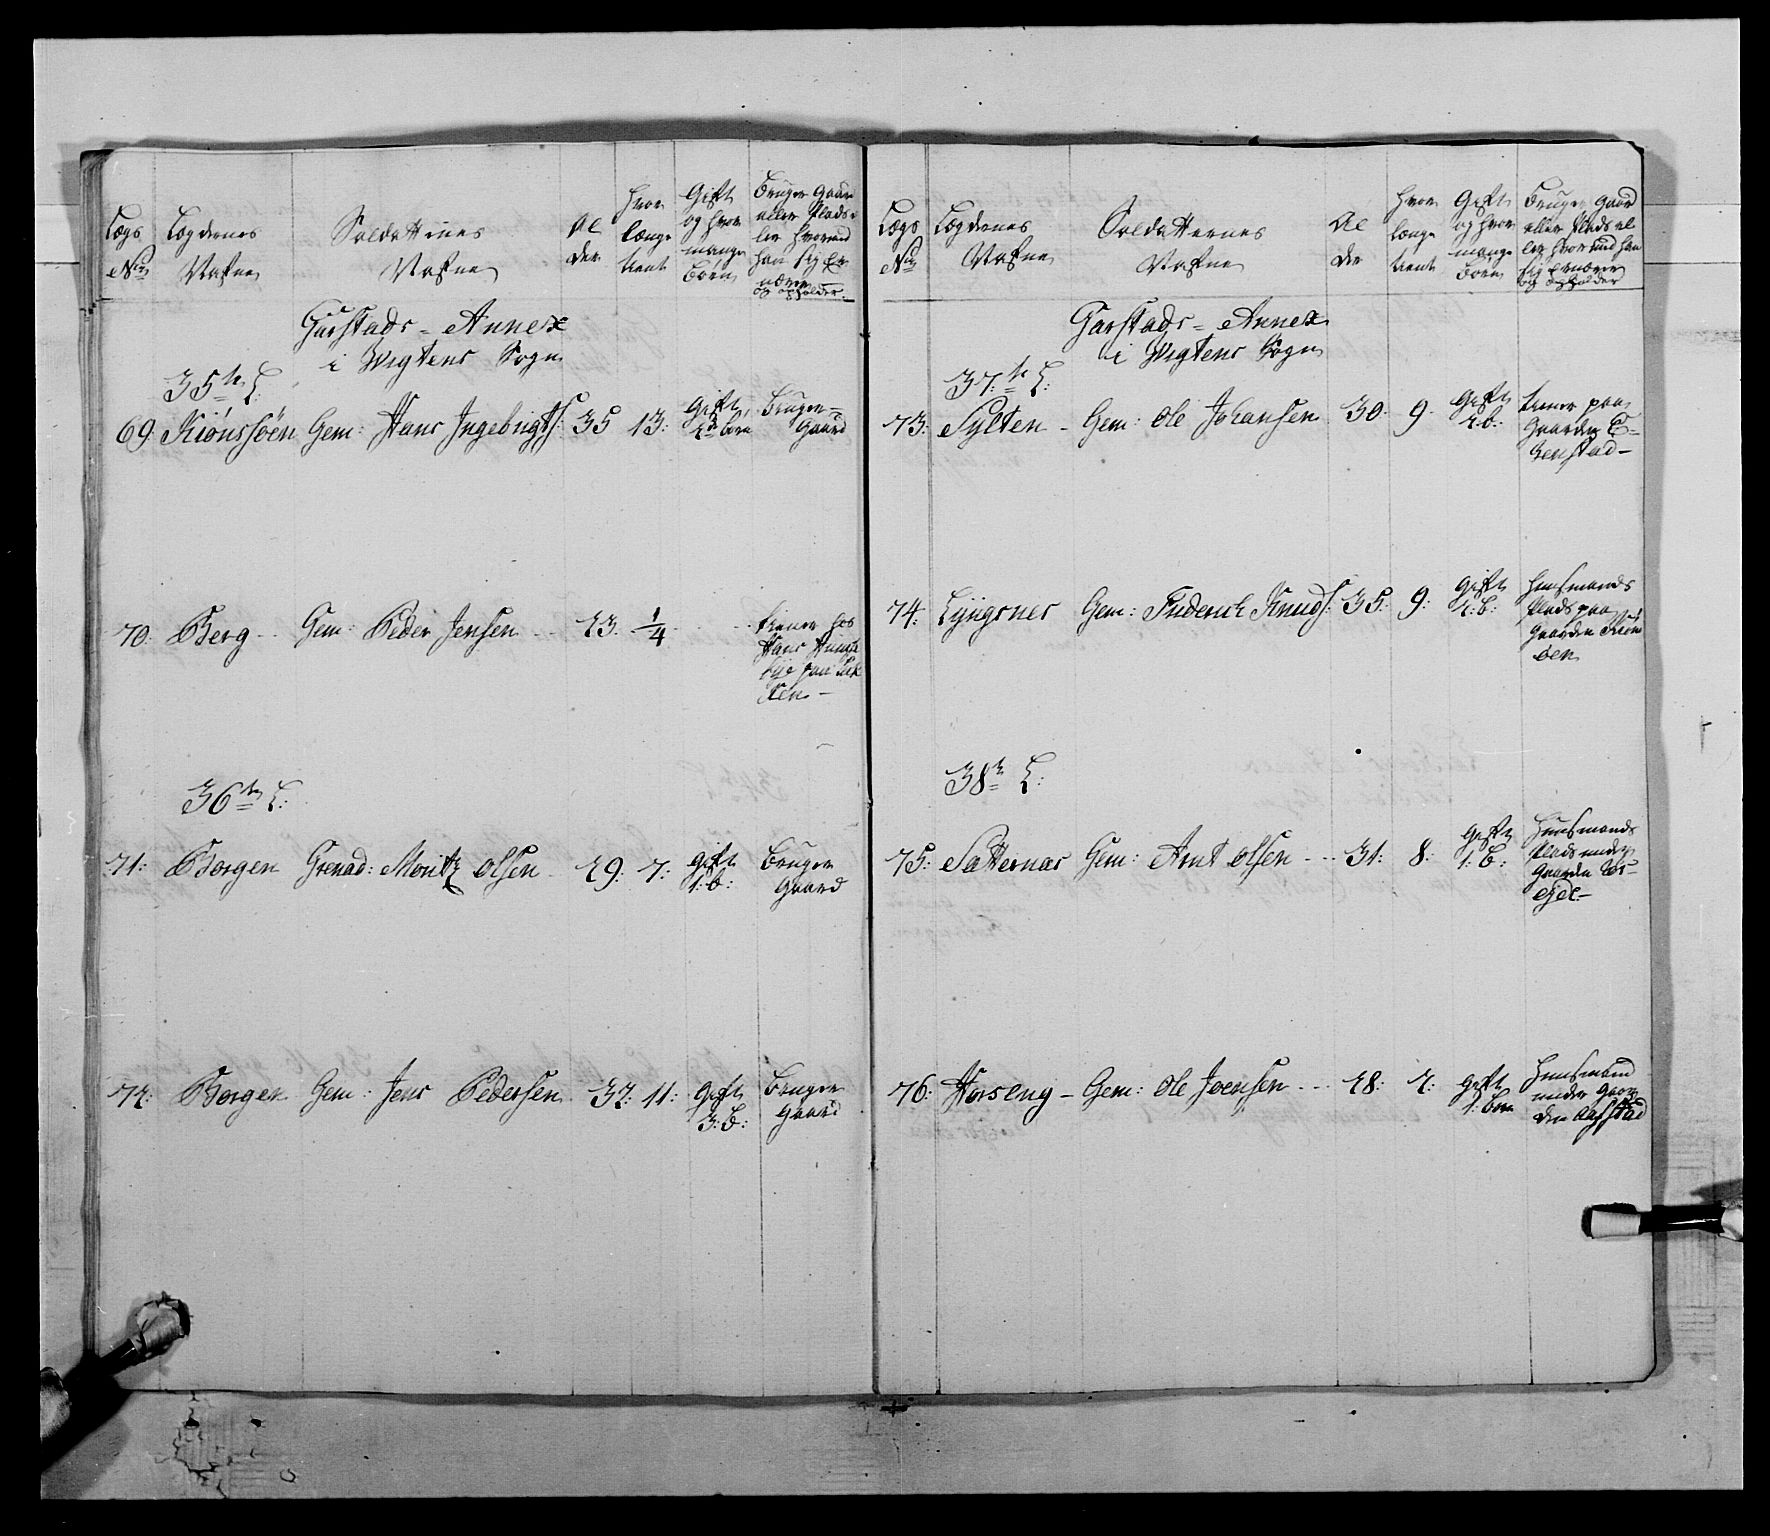 Lægs
No
Lægdernes
Nafne
Soldatternes
Nafne
Al
der
hvor
længe
tient
Gift
og hvor
mange
børn
Bruger Gaard
eller Plads e
ler hvorved
han sig er
nærer
og opholder
Garstads = Annex
i Wigtens Sogn
35te L:
69. Kiönssöen Gem: Hans Ingebrigts: 35 13: Gift 2de børn Bruger
Gaard
70: Berg Gem: Peder Jensen 23. 1/4 tiener hos
Hans
paa
36te L:
71: Borgen Grenad: Moritz Olsen 29: 7: gift Bruger
1: b: Gaard
72: Borgen Gem: Jens Pedersen 32: 11: Gift Bruger
3: b: Gaard
Lægs
No
Lægdernes
Nafne
Soldatternes
Nafne
Al
der
hvor
længe
tient
Gift
og hvor
mange
børn
Bruger Gaard
eller Plads el
ler hvorved han
sig ernærer
og opholder
Garstads = Annex
i Wigtens Sogn
37te L:
73: Sylten Gem: Ole Johansen 30. 9. Gift tiener paa
2. b: Gaarden E=
kenstad
74: Lÿngsnes Gem: Friderich Knuds: 35: 9: Gift Huusmands
2: b: Plads paa
Gaarden Kiön
öen
38te L:
75: Satternas Gem: Arnt Olsen 31: 8: Gift Huusmands
1: b: Plads under
Gaarden
76: Horseng Gem: Ole Joensen 28: 2: Gift Huusmand
1: barn under Gaar
den